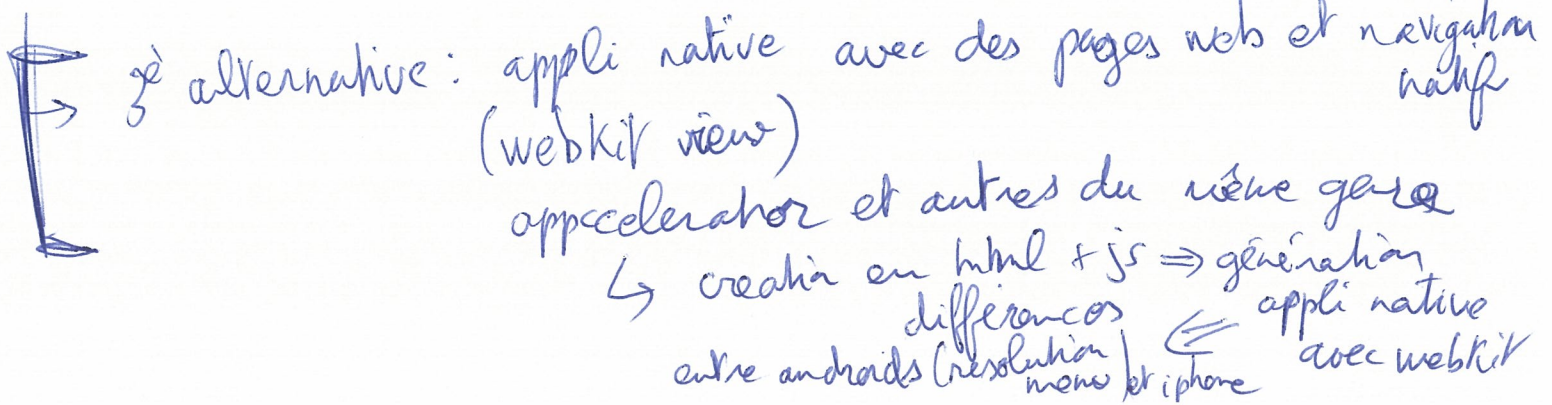 → 3è alternative : appli native avec des pages web et navigation
natif
(webkit view)
appccelerator et autres du même genre
↳ creation en html + js ⇒ génération
appli native
avec webkit
⇐ différences
entre androids (résolution
meme) et iphone